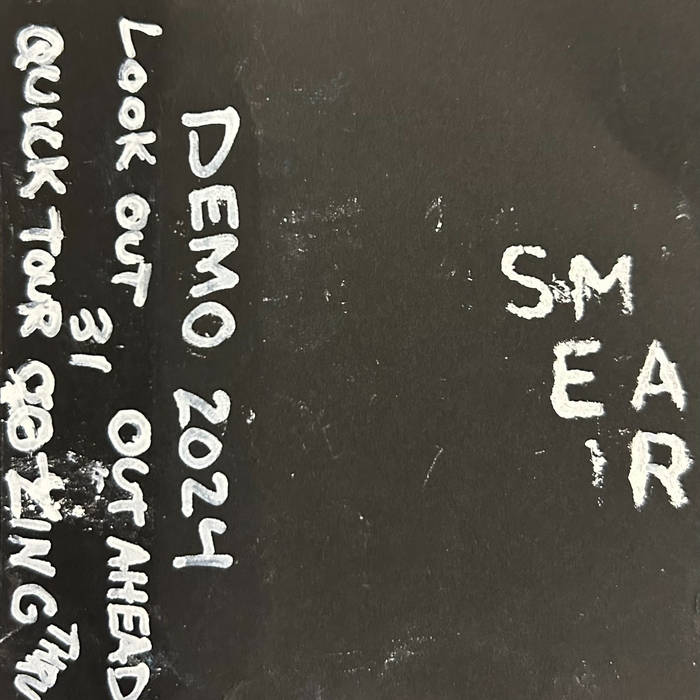 DEMO 2024
LOOK OUT OUT AHEAD
31
QUICK TOUR GOING THRU
S M
E A
R